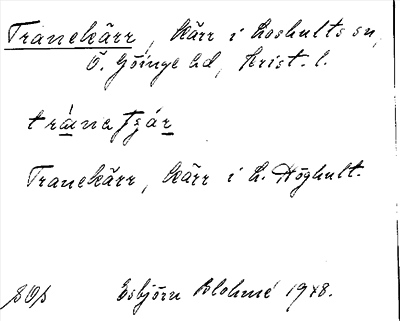 Tranekärr, kärr i Loshults sn,
Ö. Göinge hd, Krist. l.
Tranekärr, kärr i L. Höghult.
SOA
Esbjörn Blohmé 1948.